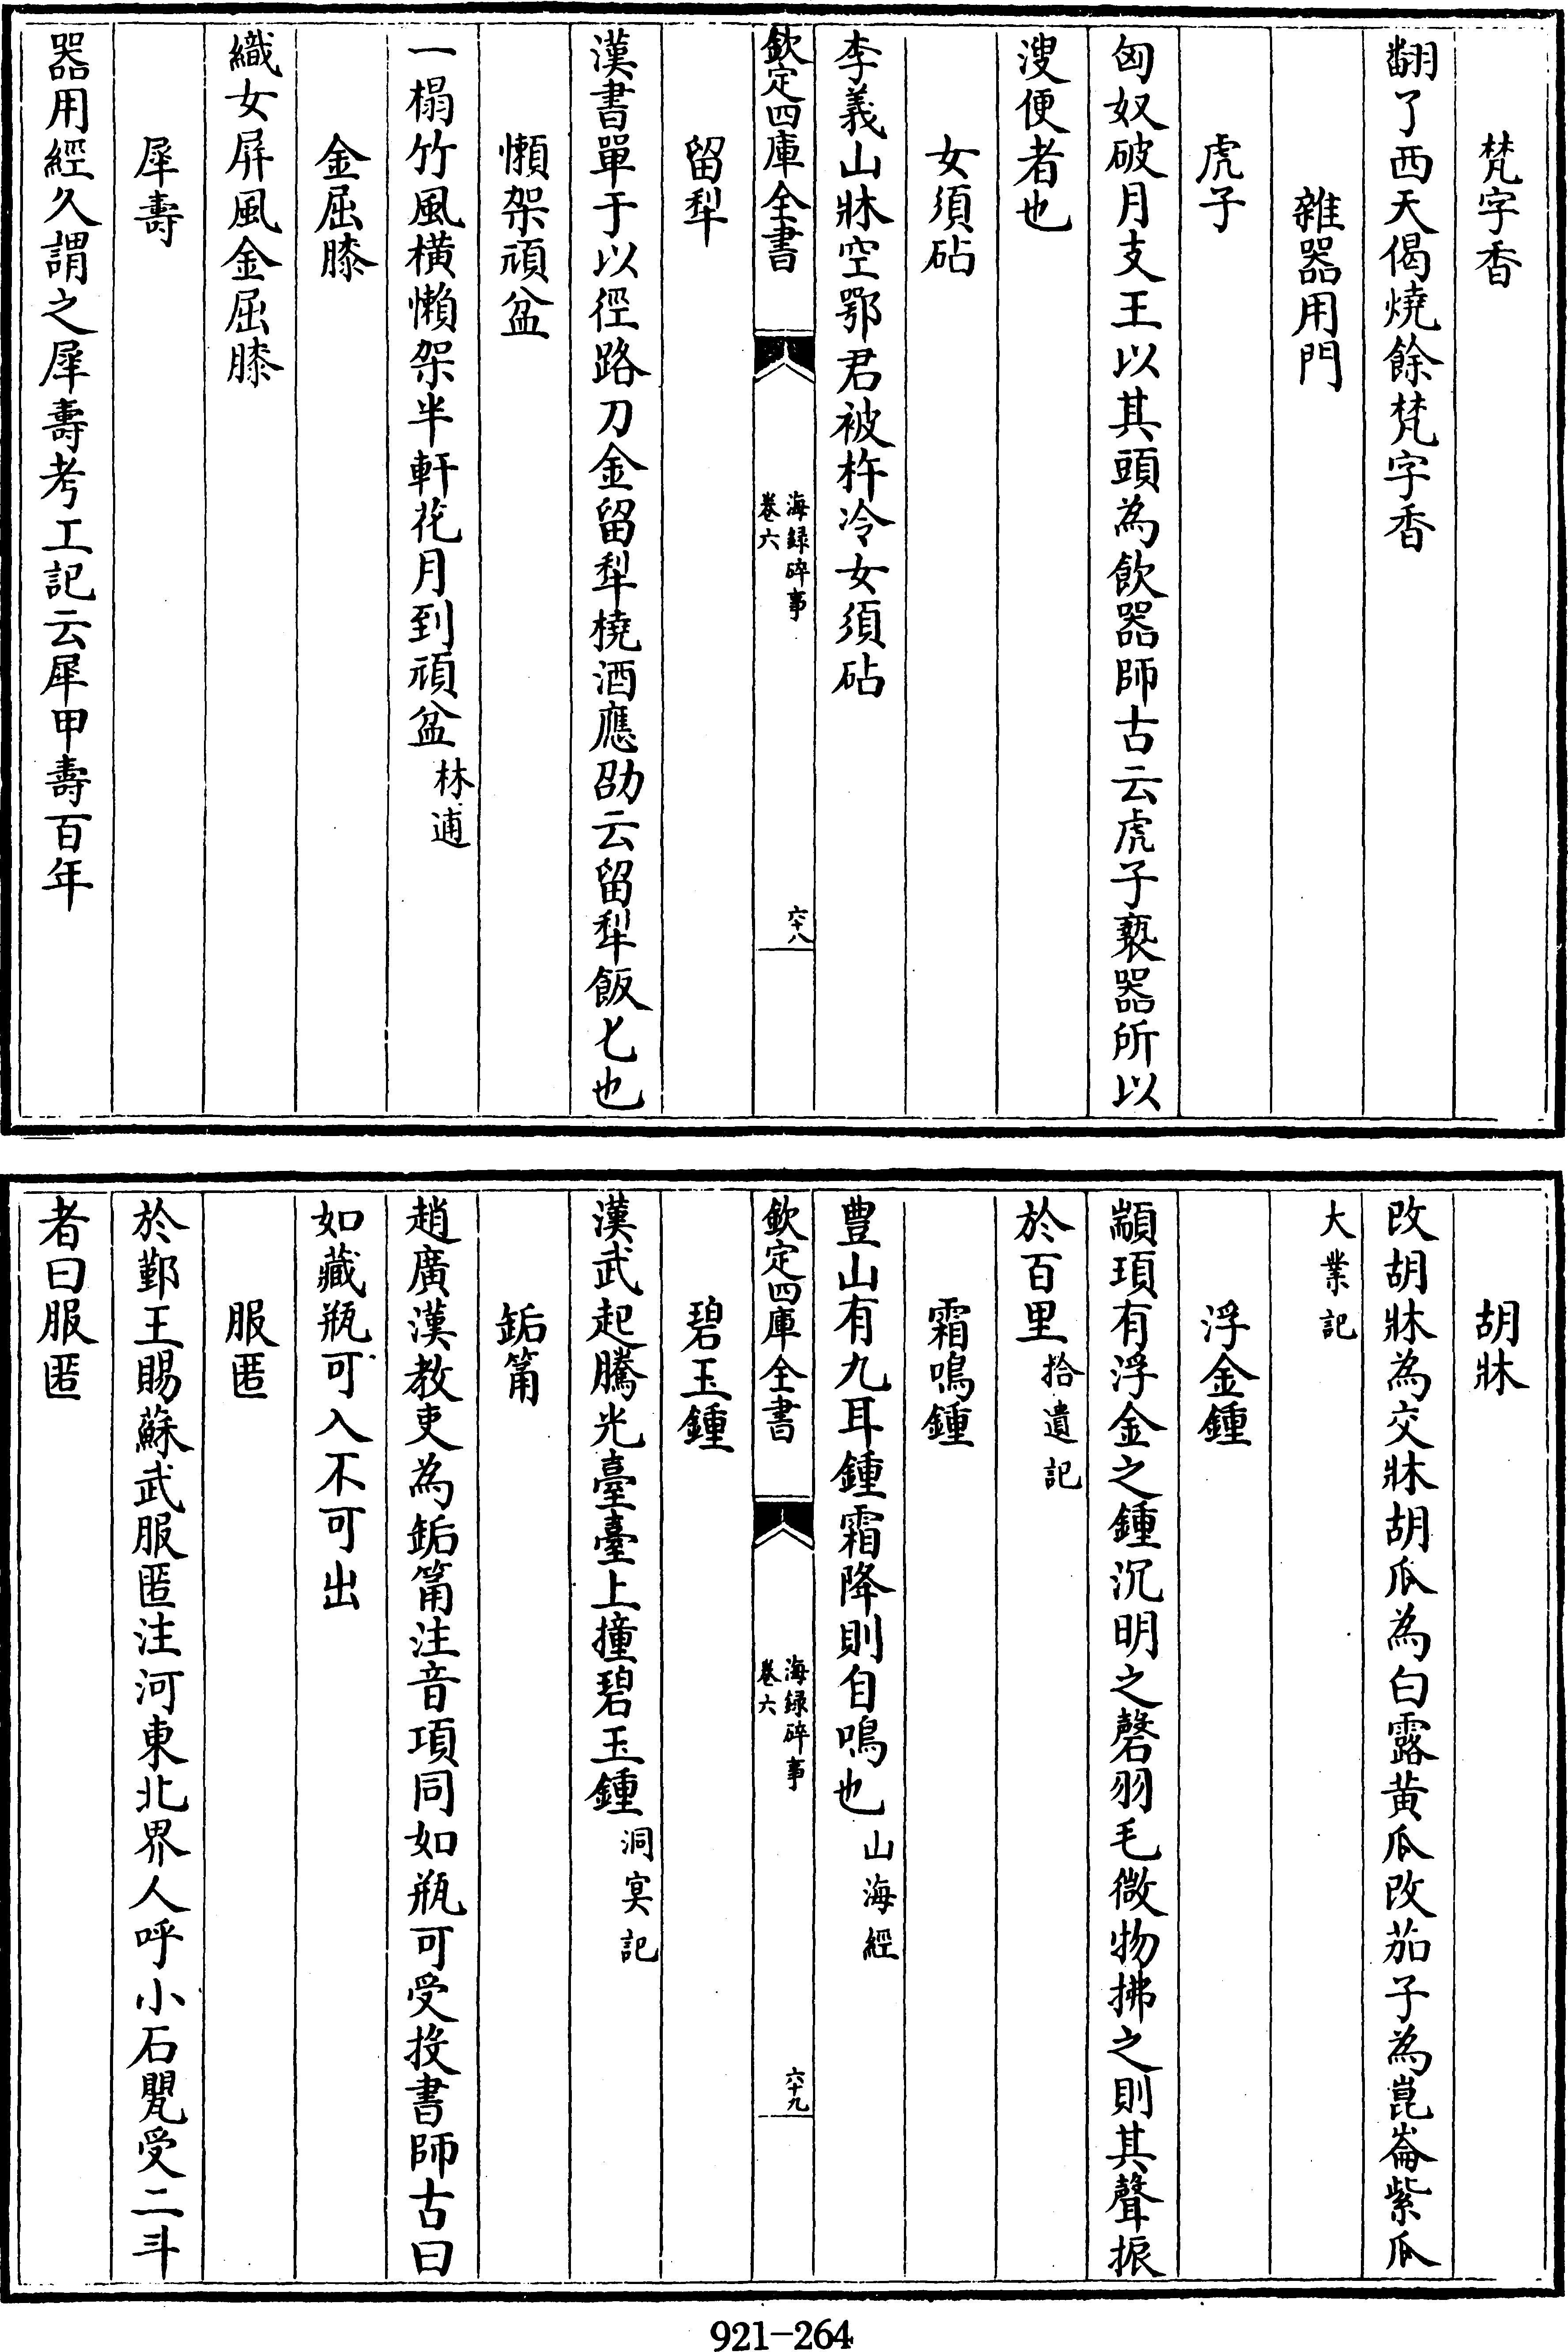 梵字香
翻了西天偈燒餘梵字香
雜器用門
虎子
匈奴破月支王以其頭為飲器師古云虎子褻器所以
溲便者也
女須砧
李義山牀空鄂君被杵冷女須砧
欽定四庫全書
海録碎事
卷六
六十八
留犁
漢書單于以徑路刀金留犁橈酒應劭云留犁飯匕也
懶架頑盆
一榻竹風橫懶架半軒花月到頑盆林逋
金屈膝
織女屏風金屈膝
犀壽
器用經久謂之犀壽考工記云犀甲壽百年
胡牀
改胡牀為交牀胡瓜為白露黃瓜改茄子為崑崙紫瓜
大業記
浮金鍾
顓頊有浮金之鍾沉明之磬羽毛微物拂之則其聲振
於百里拾遺記
霜鳴鍾
豊山有九耳鍾霜降則自鳴也山海經
欽定四庫全書
海録碎事
卷六
六十九
碧玉鍾
漢武起騰光臺臺上撞碧玉鍾洞冥記
鋀筩
趙廣漢教吏為鋀筩注音項同如瓶可受投書師古曰
如藏瓶可入不可出
服匿
於鄞王賜蘇武服匿注河東北界人呼小石甖受二斗
者曰服匿
921-264